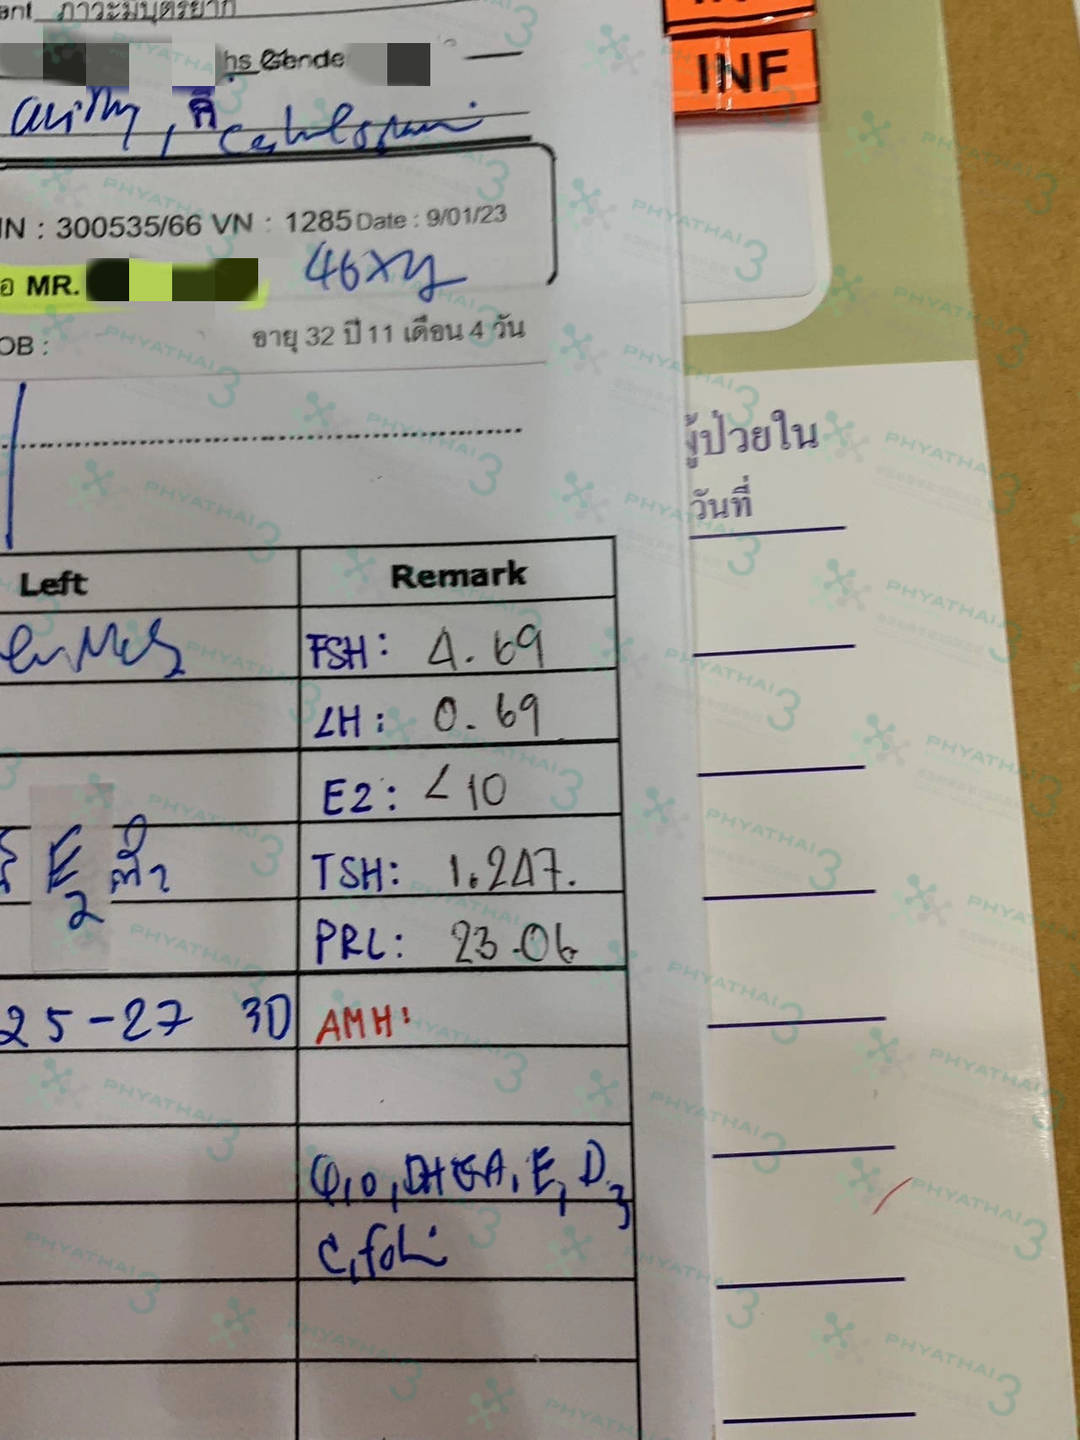 ant ภาวะมีบุตรยาก
hs Gende
INF
, ดี
IN : 300535/66 VN : 1285 Date : 9/01/23
อ MR. 46xy
OB : อายุ 32 ปี 11 เดือน 4 วัน
ผู้ป่วยใน
วันที่
Left Remark
FSH: 4.69
LH: 0.69
E2: <10
E2 ต่ำ TSH: 1.247.
PRL: 23.06
25-27 30 AMH:
Q10, DHEA, E, D3
C, foli
PHYATHAI 3